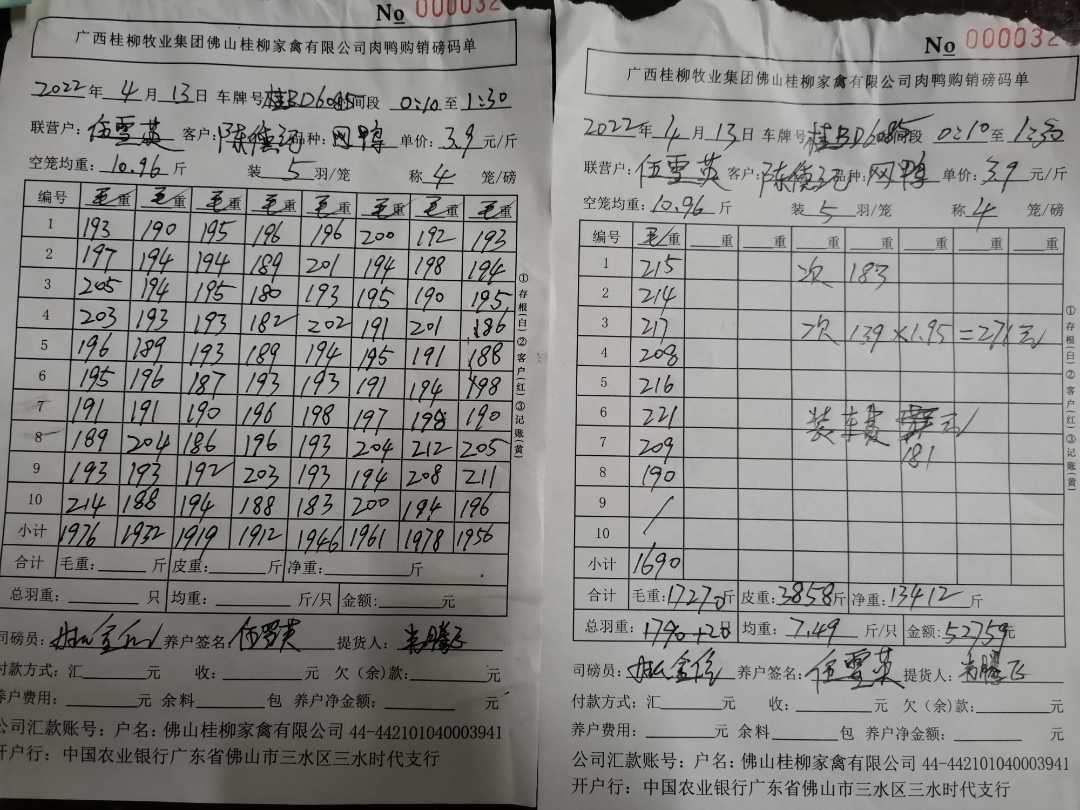 No 000032
广西桂柳牧业集团佛山桂柳家禽有限公司肉鸭购销磅码单
2022年 4月 13日 车牌号桂BD6085 时间段 0:10 至 1:30
联营户: 伍雪英 客户: 陈德 品种: 网鸭 单价: 3.9 元/斤
空笼均重: 10.96 斤 装 5 羽/笼 称 4 笼/磅
编号 毛重 毛重 毛重 毛重 毛重 毛重 毛重 毛重
1 193 190 195 196 196 200 192 193
2 197 194 194 189 201 194 198 194
3 205 194 195 180 193 195 190 195
4 203 193 193 182 202 191 201 186
5 196 189 193 189 194 195 191 188
6 195 196 187 193 193 191 194 198
7 191 191 190 196 198 197 198 190
8 189 204 186 196 193 204 212 205
9 193 193 192 203 193 194 208 211
10 214 188 194 188 183 200 194 196
小计 1976 1932 1919 1912 1946 1961 1978 1956
合计 毛重: 斤 皮重: 斤 净重: 斤
总羽重: 只 均重: 斤/只 金额: 元
司磅员: 养户签名: 伍雪英 提货人: 肖腾飞
付款方式: 汇 元 收: 元 欠(余)款: 元
养户费用: 元 余料 包 养户净金额: 元
公司汇款账号: 户名: 佛山桂柳家禽有限公司 44-442101040003941
开户行: 中国农业银行广东省佛山市三水区三水时代支行
①存根(白)②客户(红)③记账(黄)
No 000032
广西桂柳牧业集团佛山桂柳家禽有限公司肉鸭购销磅码单
2022年 4月 13日 车牌号桂BD6085 时间段 0:10 至 1:30
联营户: 伍雪英 客户: 陈德 品种: 网鸭 单价: 3.9 元/斤
空笼均重: 10.96 斤 装 5 羽/笼 称 4 笼/磅
编号 毛重 重 重 重 重 重 重 重
1 215 次 183
2 214
3 217 次 139×1.95=271元
4 208
5 216
6 221 装车费 元
7 209 181
8 190
9 /
10
小计 1690
合计 毛重: 17270斤 皮重: 3858斤 净重: 13412 斤
总羽重: 1790+20 只 均重: 7.49 斤/只 金额: 52759元
司磅员: 养户签名: 伍雪英 提货人: 肖腾飞
付款方式: 汇 元 收: 元 欠(余)款: 元
养户费用: 元 余料 包 养户净金额: 元
公司汇款账号: 户名: 佛山桂柳家禽有限公司 44-442101040003941
开户行: 中国农业银行广东省佛山市三水区三水时代支行
①存根(白)②客户(红)③记账(黄)